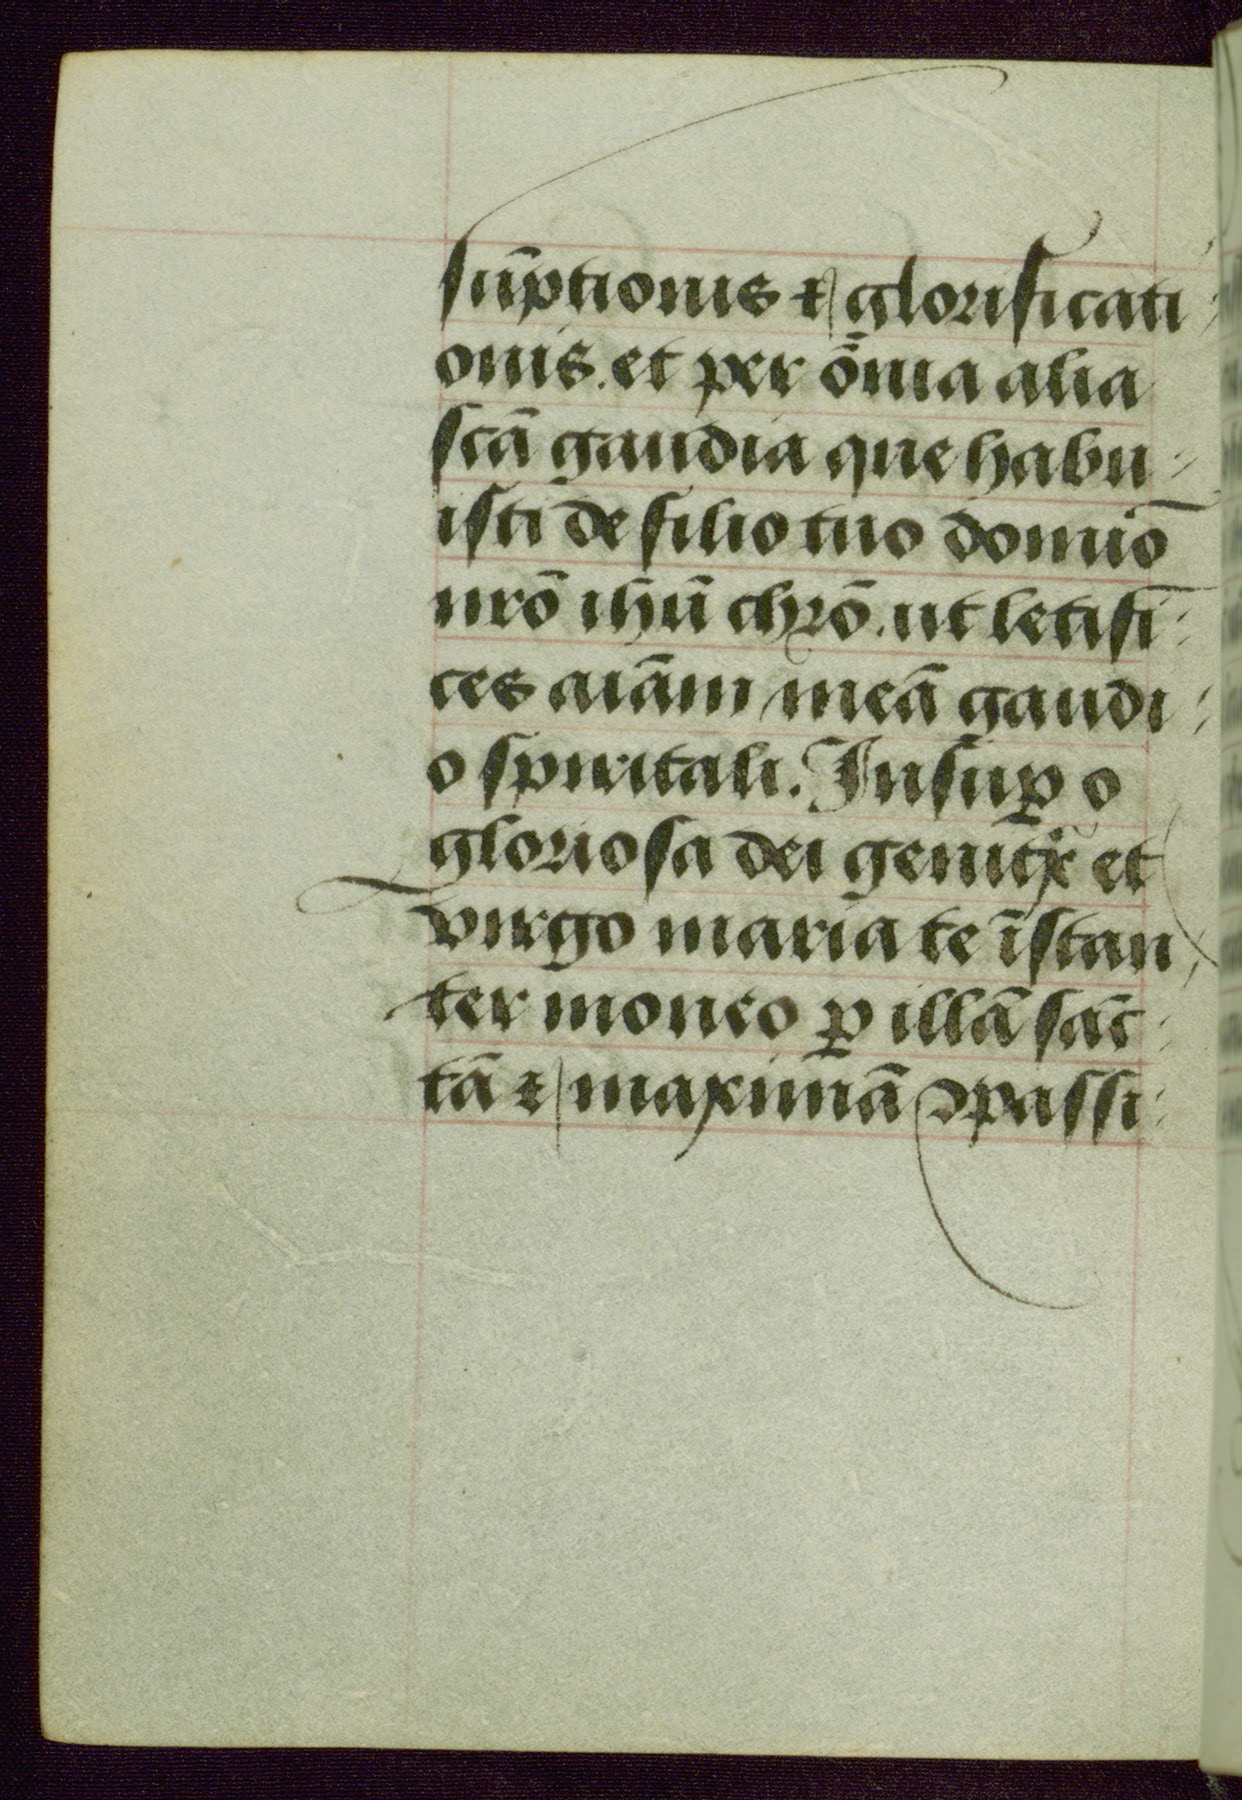 sūptionis ⁊ glorificati-
onis. et per ōnia alia
scā gaudia que habu-
isti de filio tuo domiō
nrō ihū chrō. ut letifi-
ces aiām meā gaudi-
o spiritali. Insuꝑ o
gloriosa dei genitͥx et
virgo maria te īstan-
ter moneo ꝑ illā sāc-
tā ⁊ maximā ꝯpassi-